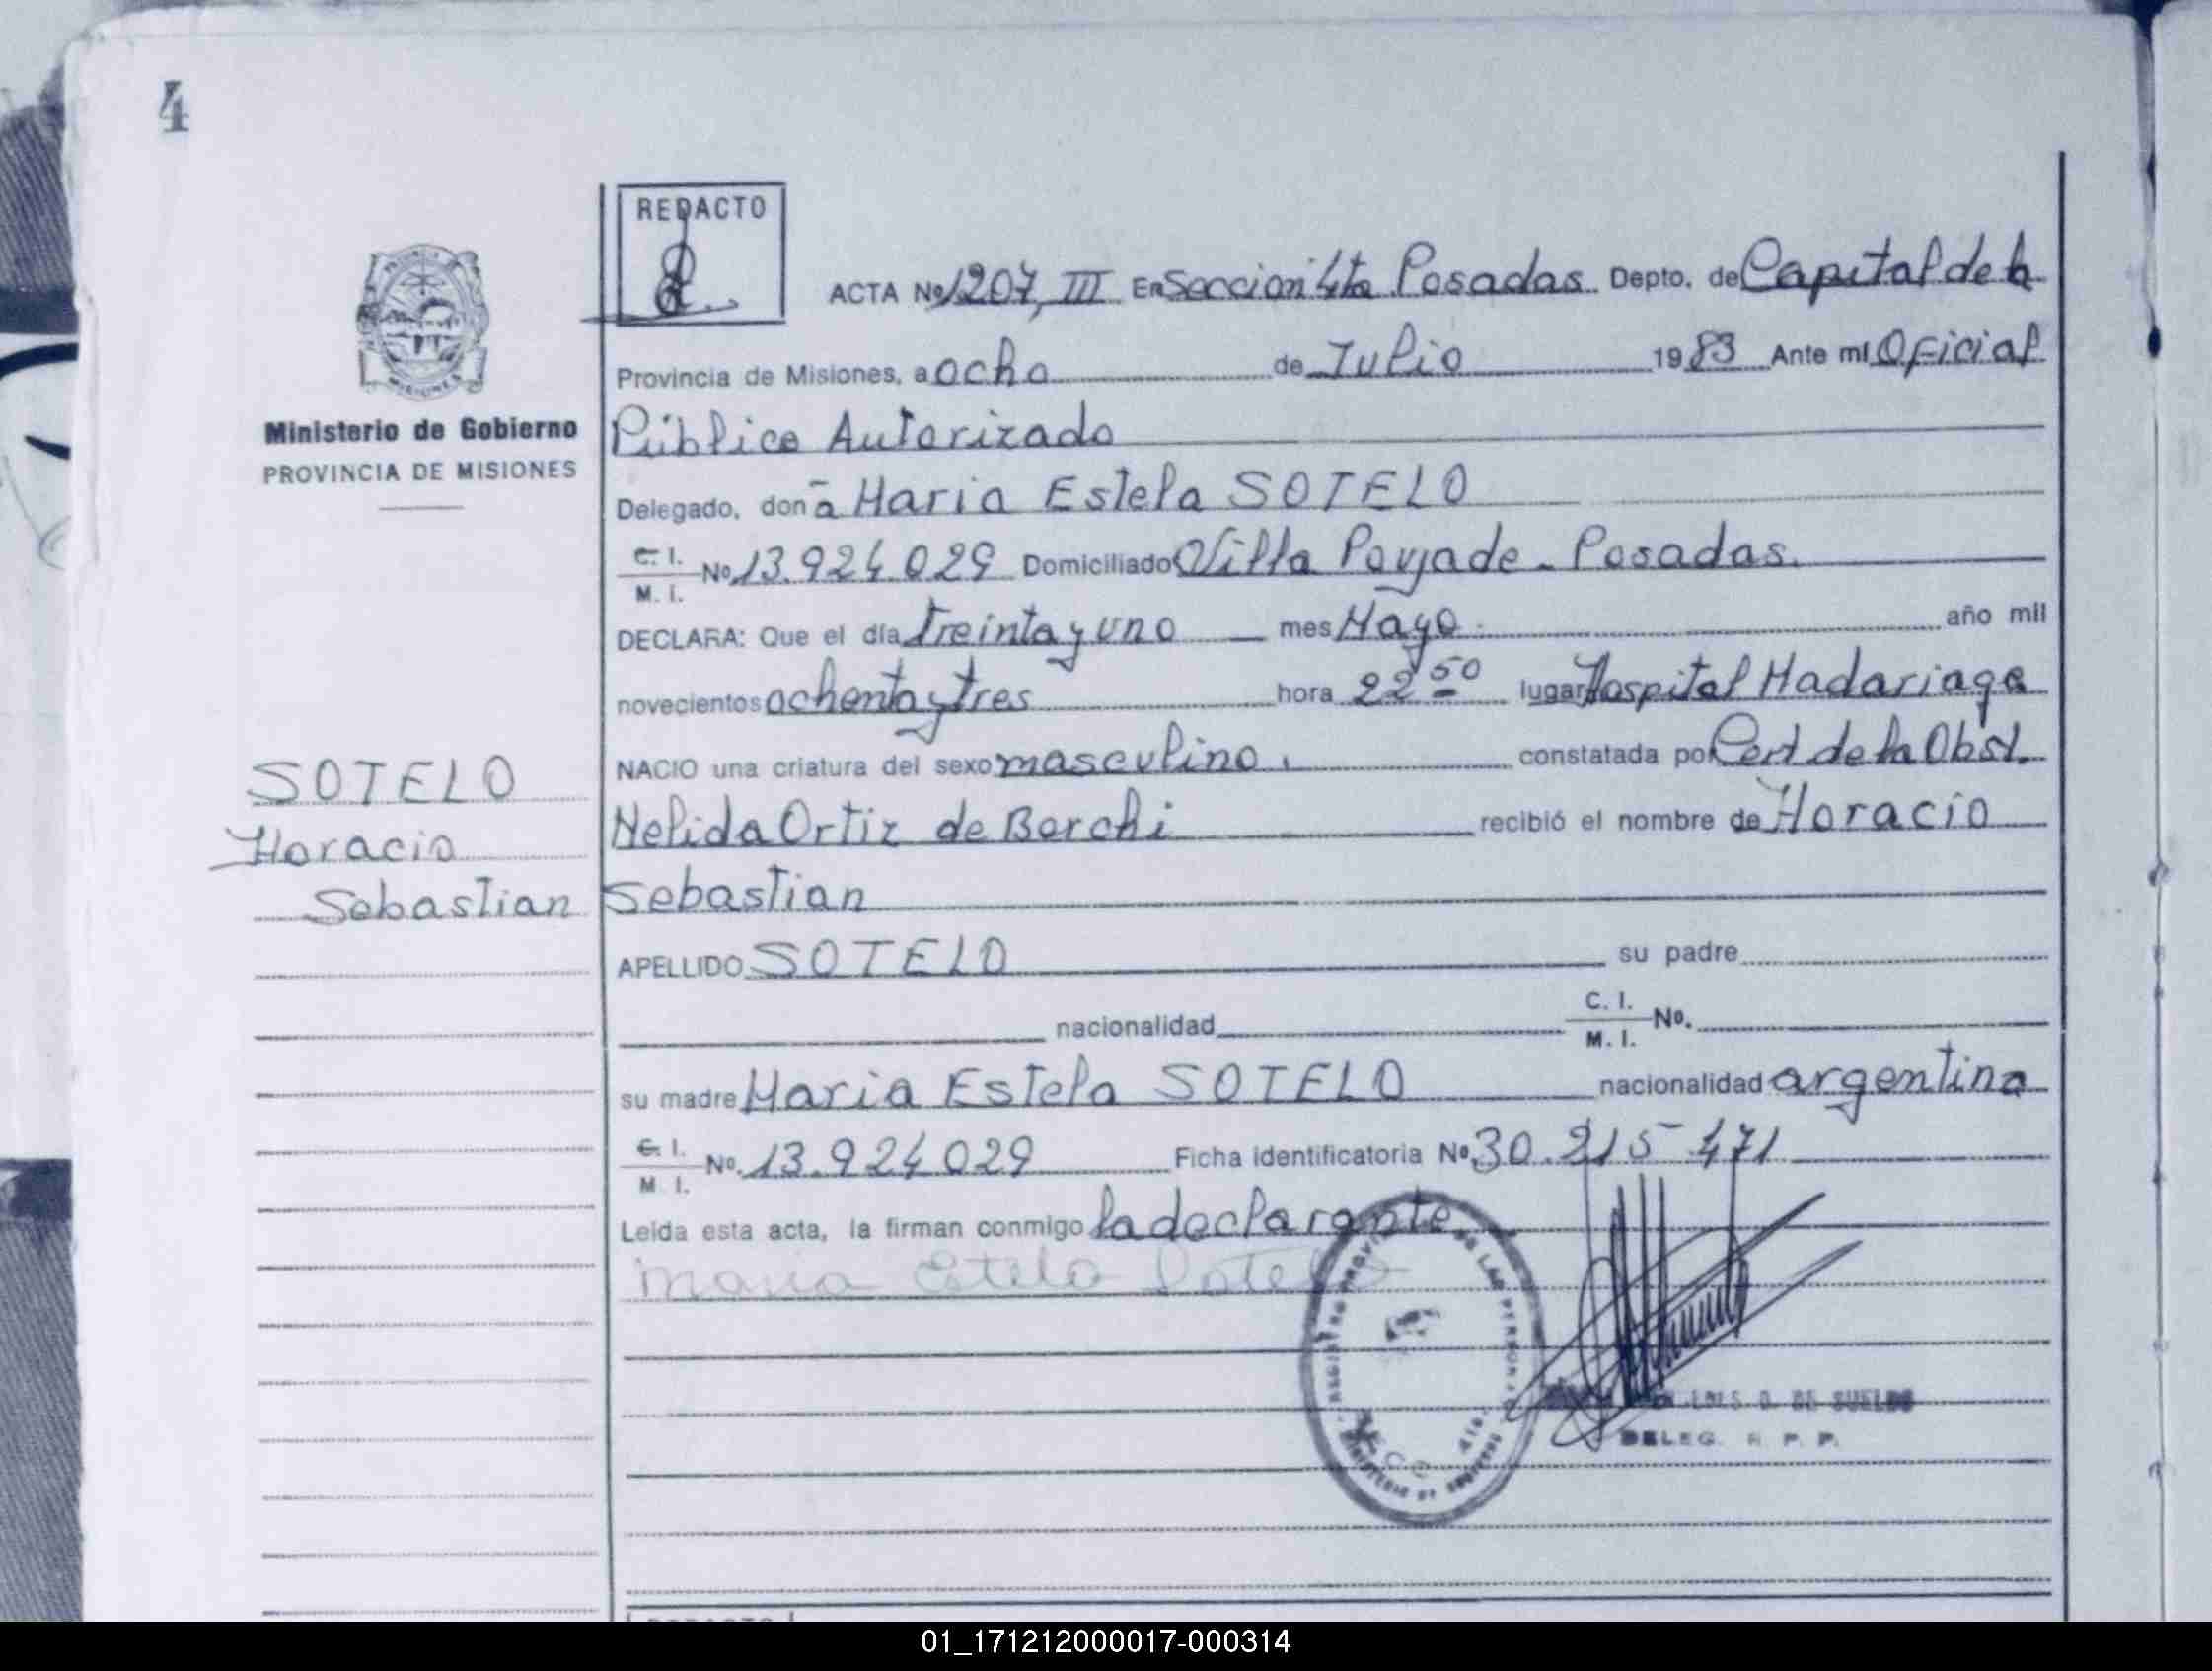 4
REDACTO
ACTA Nº 1207, III En Seccion 4ta Posadas Depto. de Capital de la
Provincia de Misiones, a ocho de Julio 1983 Ante mi Oficial
Público Autorizado
Ministerio de Gobierno
PROVINCIA DE MISIONES
Delegado, doñ a Maria Estela SOTELO
C. I.
M. I. Nº 13.924.029 Domiciliado Villa Poujade - Posadas.
DECLARA: Que el día treinta y uno mes Mayo año mil
novecientos ochenta y tres hora 22 50 lugar Hospital Madariaga
NACIO una criatura del sexo masculino, constatada por Cert de la Obst.
Nelida Ortiz de Borchi recibió el nombre de Horacio
Sebastian
SOTELO
Horacio
Sebastian
APELLIDO SOTELO su padre
nacionalidad C. I.
M. I. Nº.
su madre Maria Estela SOTELO nacionalidad argentina
C. I.
M. I. Nº. 13.924 029 Ficha identificatoria Nº 30.215 471
Leída esta acta, la firman conmigo la declarante
Maria Estela Sotelo
REGISTRO DE LAS PERSONAS
DE SUELDO
DELEG. R P. P.
01_171212000017-000314